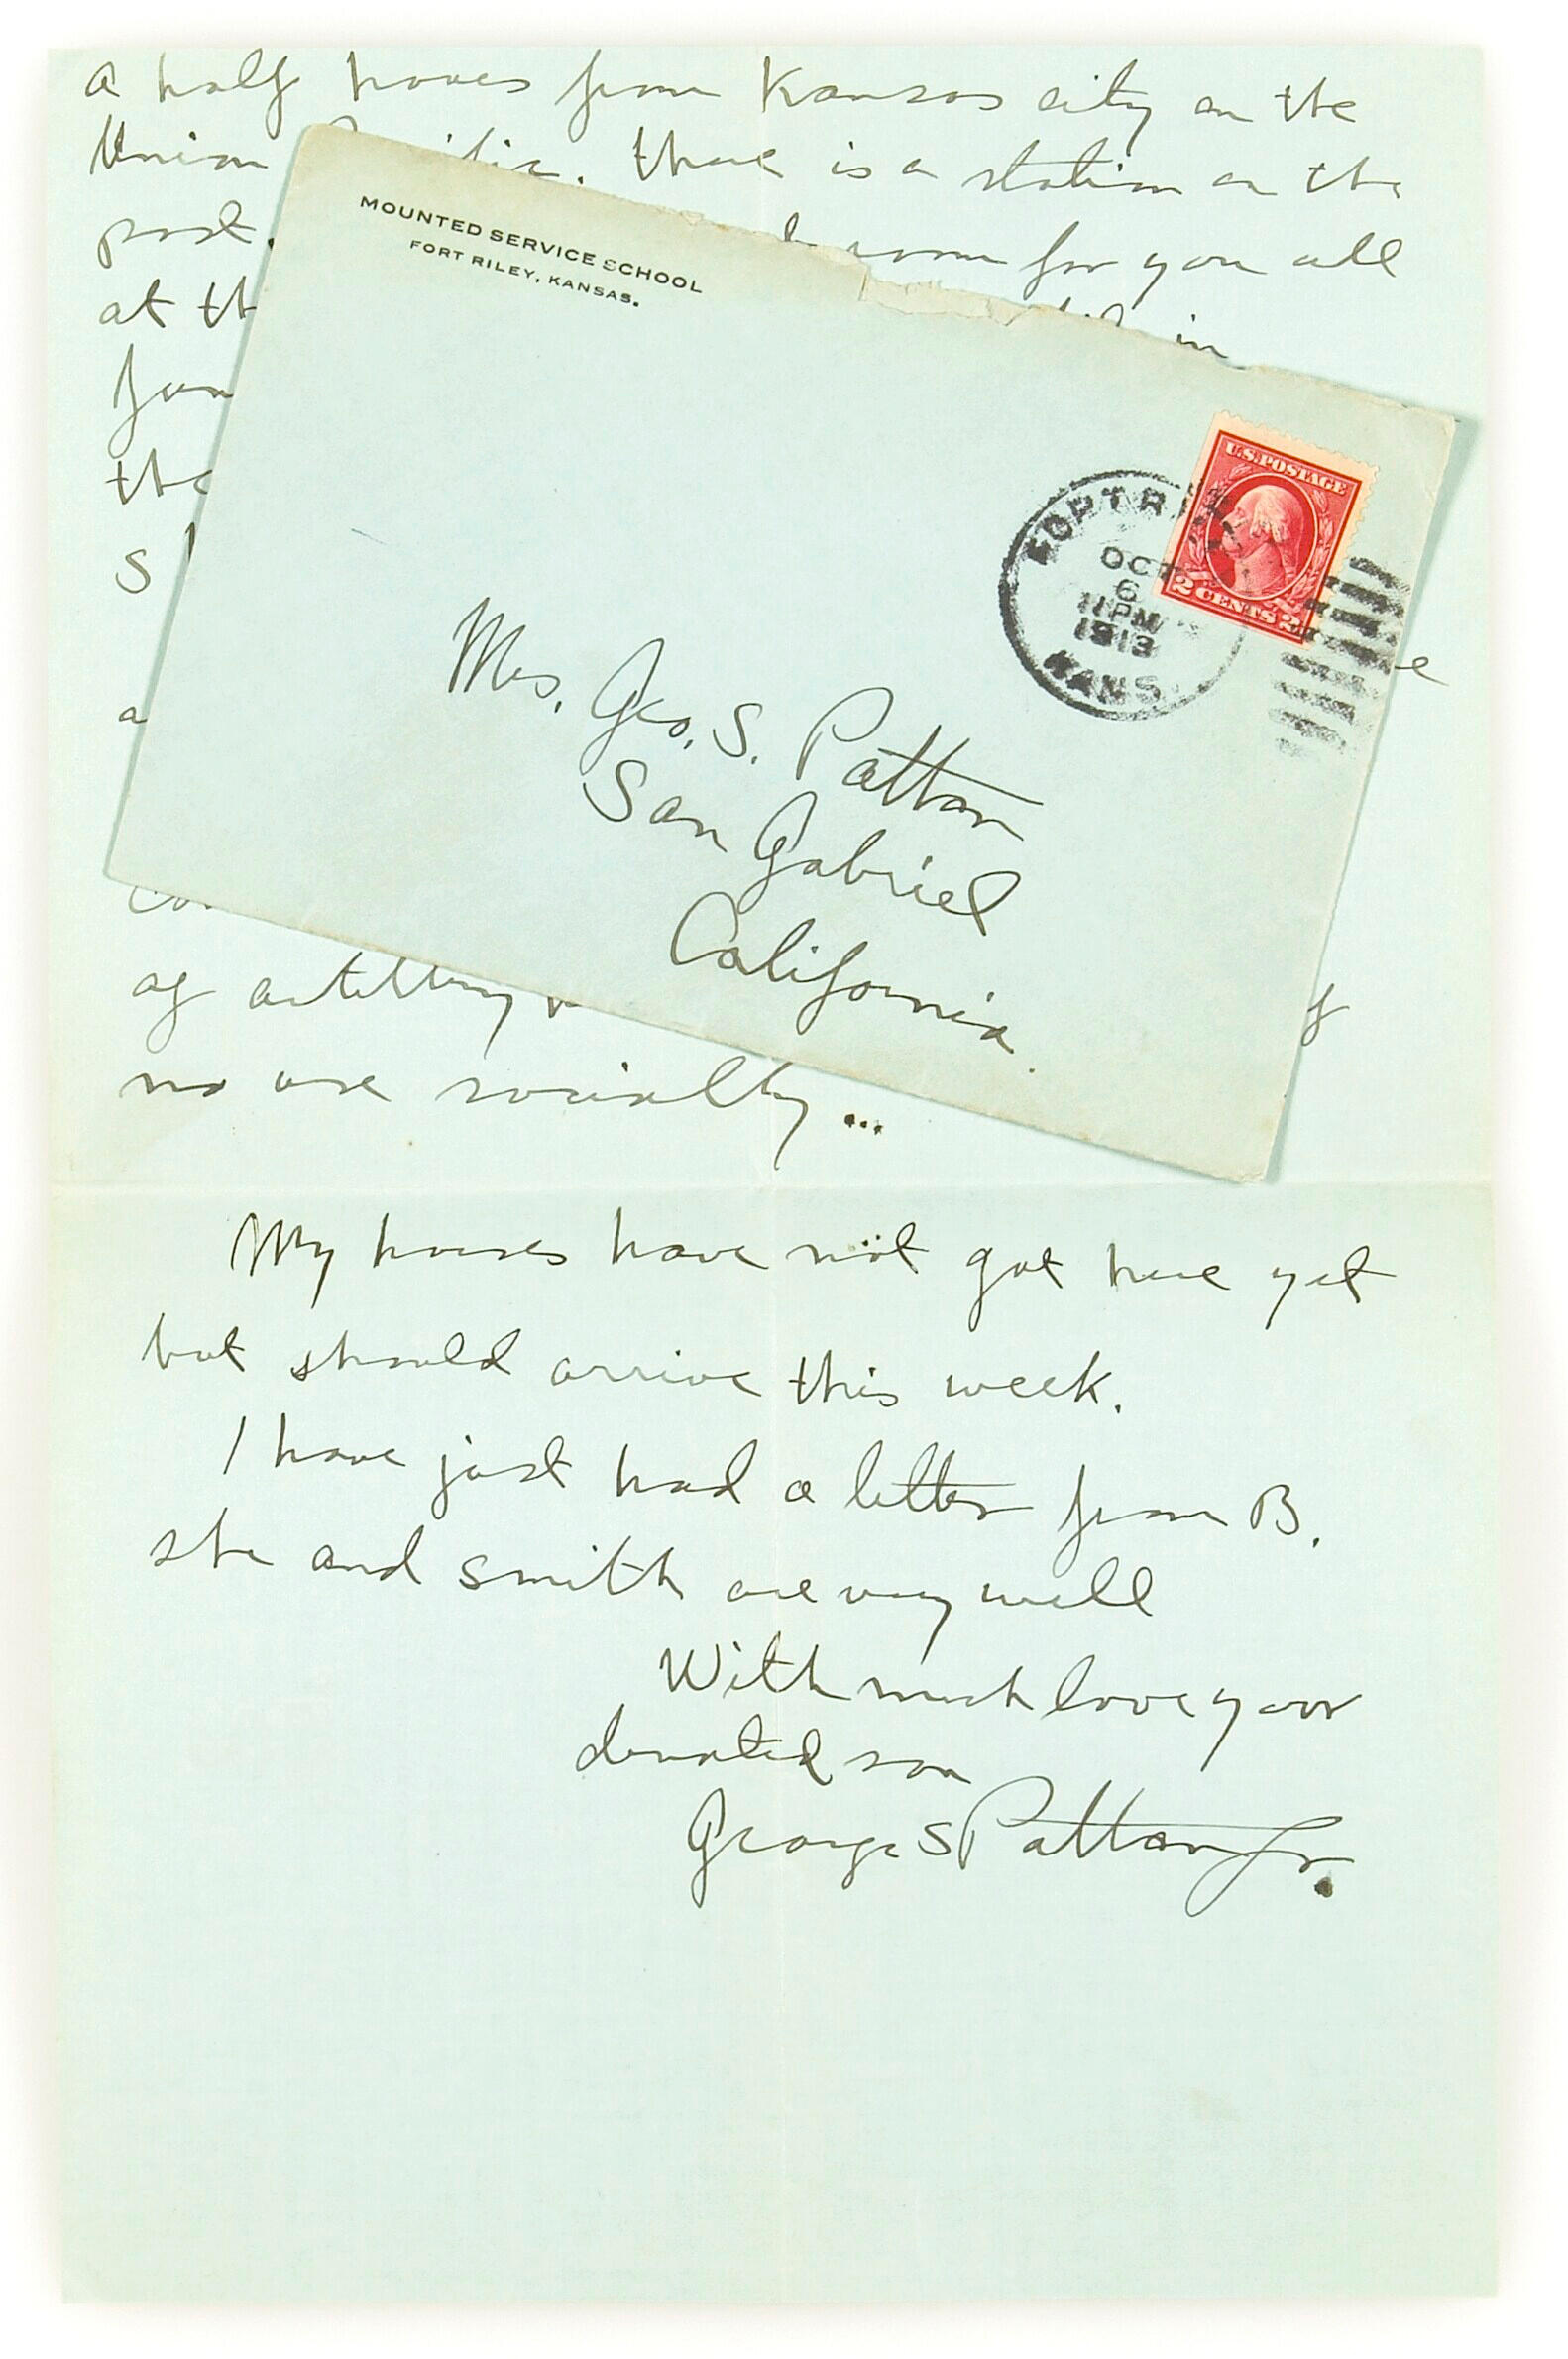 a half hours from Kansas city on the
Union. there is a station on the
post. room for you all
at th
in
the
of artillery
no use socially ...
My horses have not got here yet
but should arrive this week.
I have just had a letter from B.
she and Smith are very well
With much love your
devoted son
George S Patton Jr.
MOUNTED SERVICE SCHOOL
FORT RILEY, KANSAS.
U.S. POSTAGE
2 CENTS 2
FORT RILEY
OCT
6
11 PM
1913
KANS.
Mrs. Geo. S. Patton
San Gabriel
California.